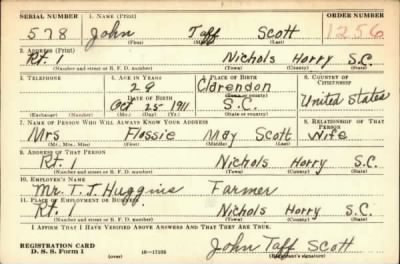 SERIAL NUMBER 1. NAME (Print) ORDER NUMBER
578 John Taff Scott 1256
(First) (Middle) (Last)
2. ADDRESS (Print)
Rt. 1 Nichols Horry S.C.
(Number and street or R. F. D. number) (Town) (County) (State)
3. TELEPHONE 4. AGE IN YEARS 5. PLACE OF BIRTH 6. COUNTRY OF CITIZENSHIP
28 Clarendon
(Town or county)
DATE OF BIRTH
Oct 25 1911 S.C. United States
(Exchange) (Number) (Mo.) (Day) (Yr.) (State or country)
7. NAME OF PERSON WHO WILL ALWAYS KNOW YOUR ADDRESS 8. RELATIONSHIP OF THAT PERSON
Mrs Flossie May Scott Wife
(Mr., Mrs., Miss) (First) (Middle) (Last)
9. ADDRESS OF THAT PERSON
Rt. 1 Nichols Horry S.C.
(Number and street or R. F. D. number) (Town) (County) (State)
10. EMPLOYER'S NAME
Mr. T. J. Huggins Farmer
11. PLACE OF EMPLOYMENT OR BUSINESS
Rt. 1 Nichols Horry S.C.
(Number and street or R. F. D. number) (Town) (County) (State)
I AFFIRM THAT I HAVE VERIFIED ABOVE ANSWERS AND THAT THEY ARE TRUE.
John Taff Scott
REGISTRATION CARD
D. S. S. Form 1 (over) 16—17105 (Registrant's signature)